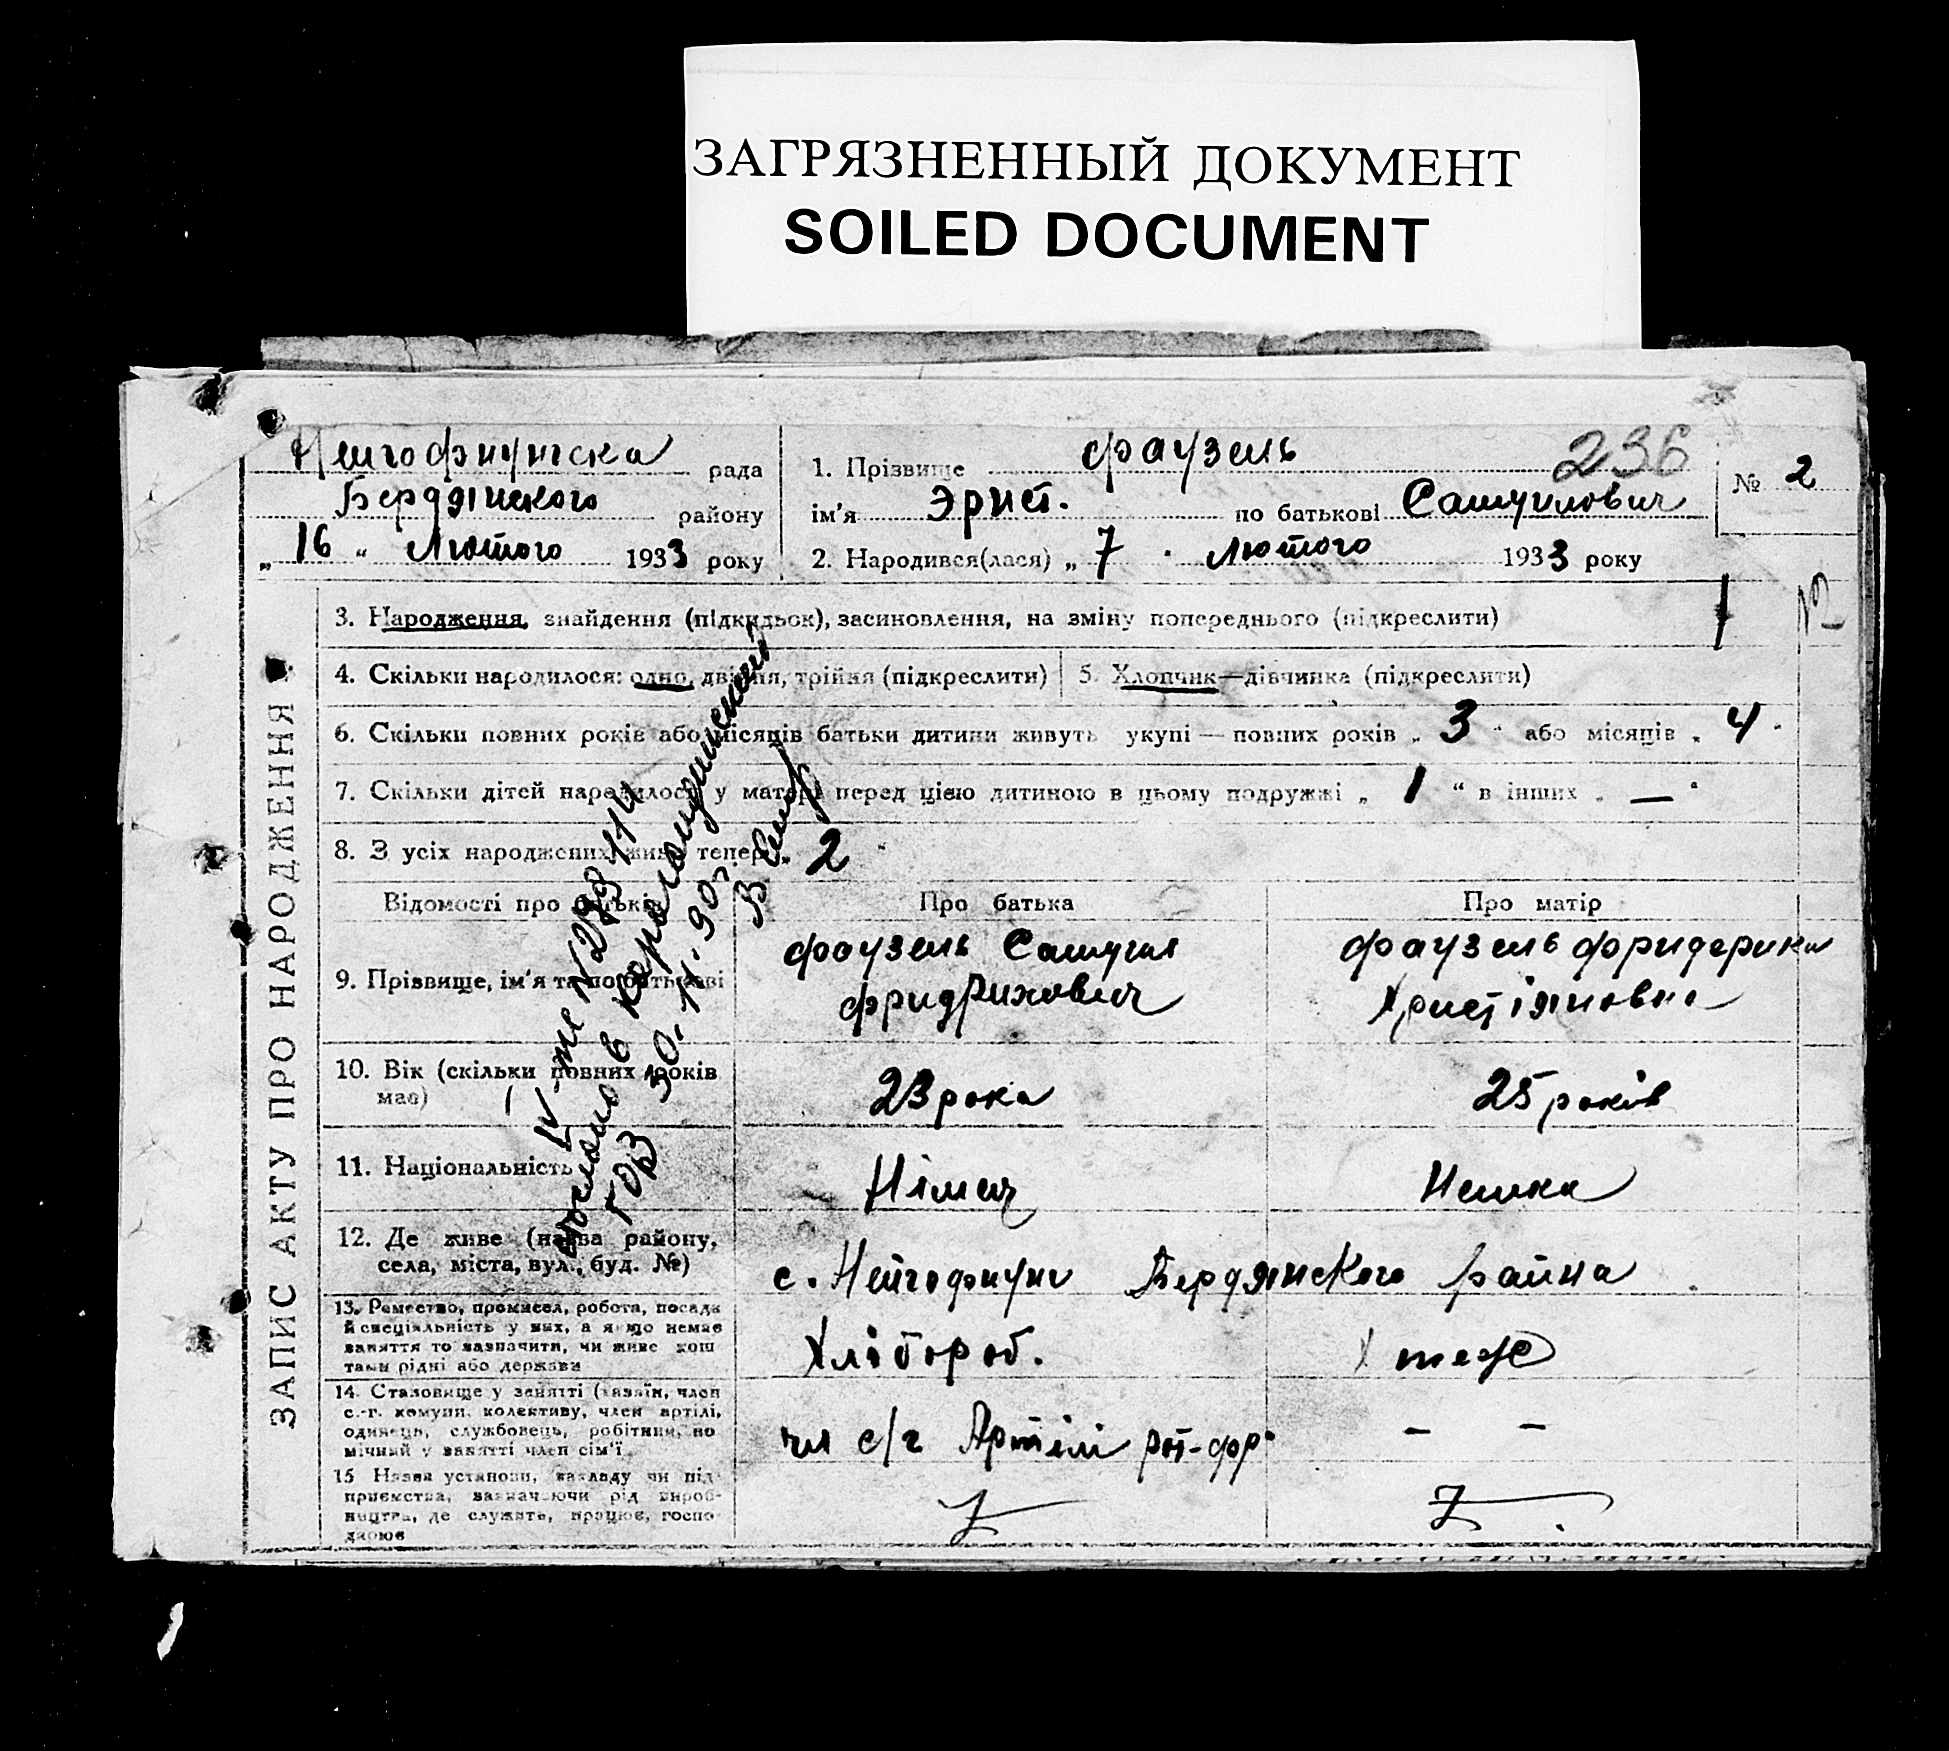 ЗАГРЯЗНЕННЫЙ ДОКУМЕНТ
SOILED DOCUMENT
236
Нейгофнунгска рада
Бердянского району
„16“ Лютого 1933 року
1. Прізвище Фаузель
ім'я Эрнст. по батькові Самуилович
№ 2
2. Народився(лася) „7 Лютого 1933 року
ЗАПИС АКТУ ПРО НАРОДЖЕННЯ
3. Народження, знайдення (підкидьок), засиновлення, на зміну попереднього (підкреслити)
4. Скільки народилося: одно, двійня, трійня (підкреслити)
5. Хлопчик—дівчинка (підкреслити)
6. Скільки повних років або місяців батьки дитини живуть укупі — повних років „3“ або місяців „4
7. Скільки дітей народилось у матері перед цією дитиною в цьому подружжі „1“ в інших „—“
8. З усіх народжених живе тепер „2“
Відомості про батьків
Про батька
Про матір
9. Прізвище, ім'я та по батькові
Фаузель Самуил
Фридрихович
Фаузель Фридерика
Христіяновна
10. Вік (скільки повних років
має)
23 рока
25 років
11. Національність
Німец
Немка
12. Де живе (назва району,
села, міста, вул., буд. №)
с. Нейгофнунг Бердянского района
13. Ремество, промисел, робота, посада
й спеціяльність у них, а якщо немає
заняття то зазначити, чи живе кош
тами рідні або держави
Хлібороб.
тоже
14. Становище у занятті (хазяїн, член
с.-г. комуни, колективу, член артілі,
одинець, службовець, робітник, по
мічний у занятті член сім'ї
чл с/г Артілі
— —
15 Назва установи, закладу чи під-
приємства, зазначаючи рід вироб-
ництва, де служить, працює, госпо-
дарює
30. 11. 90